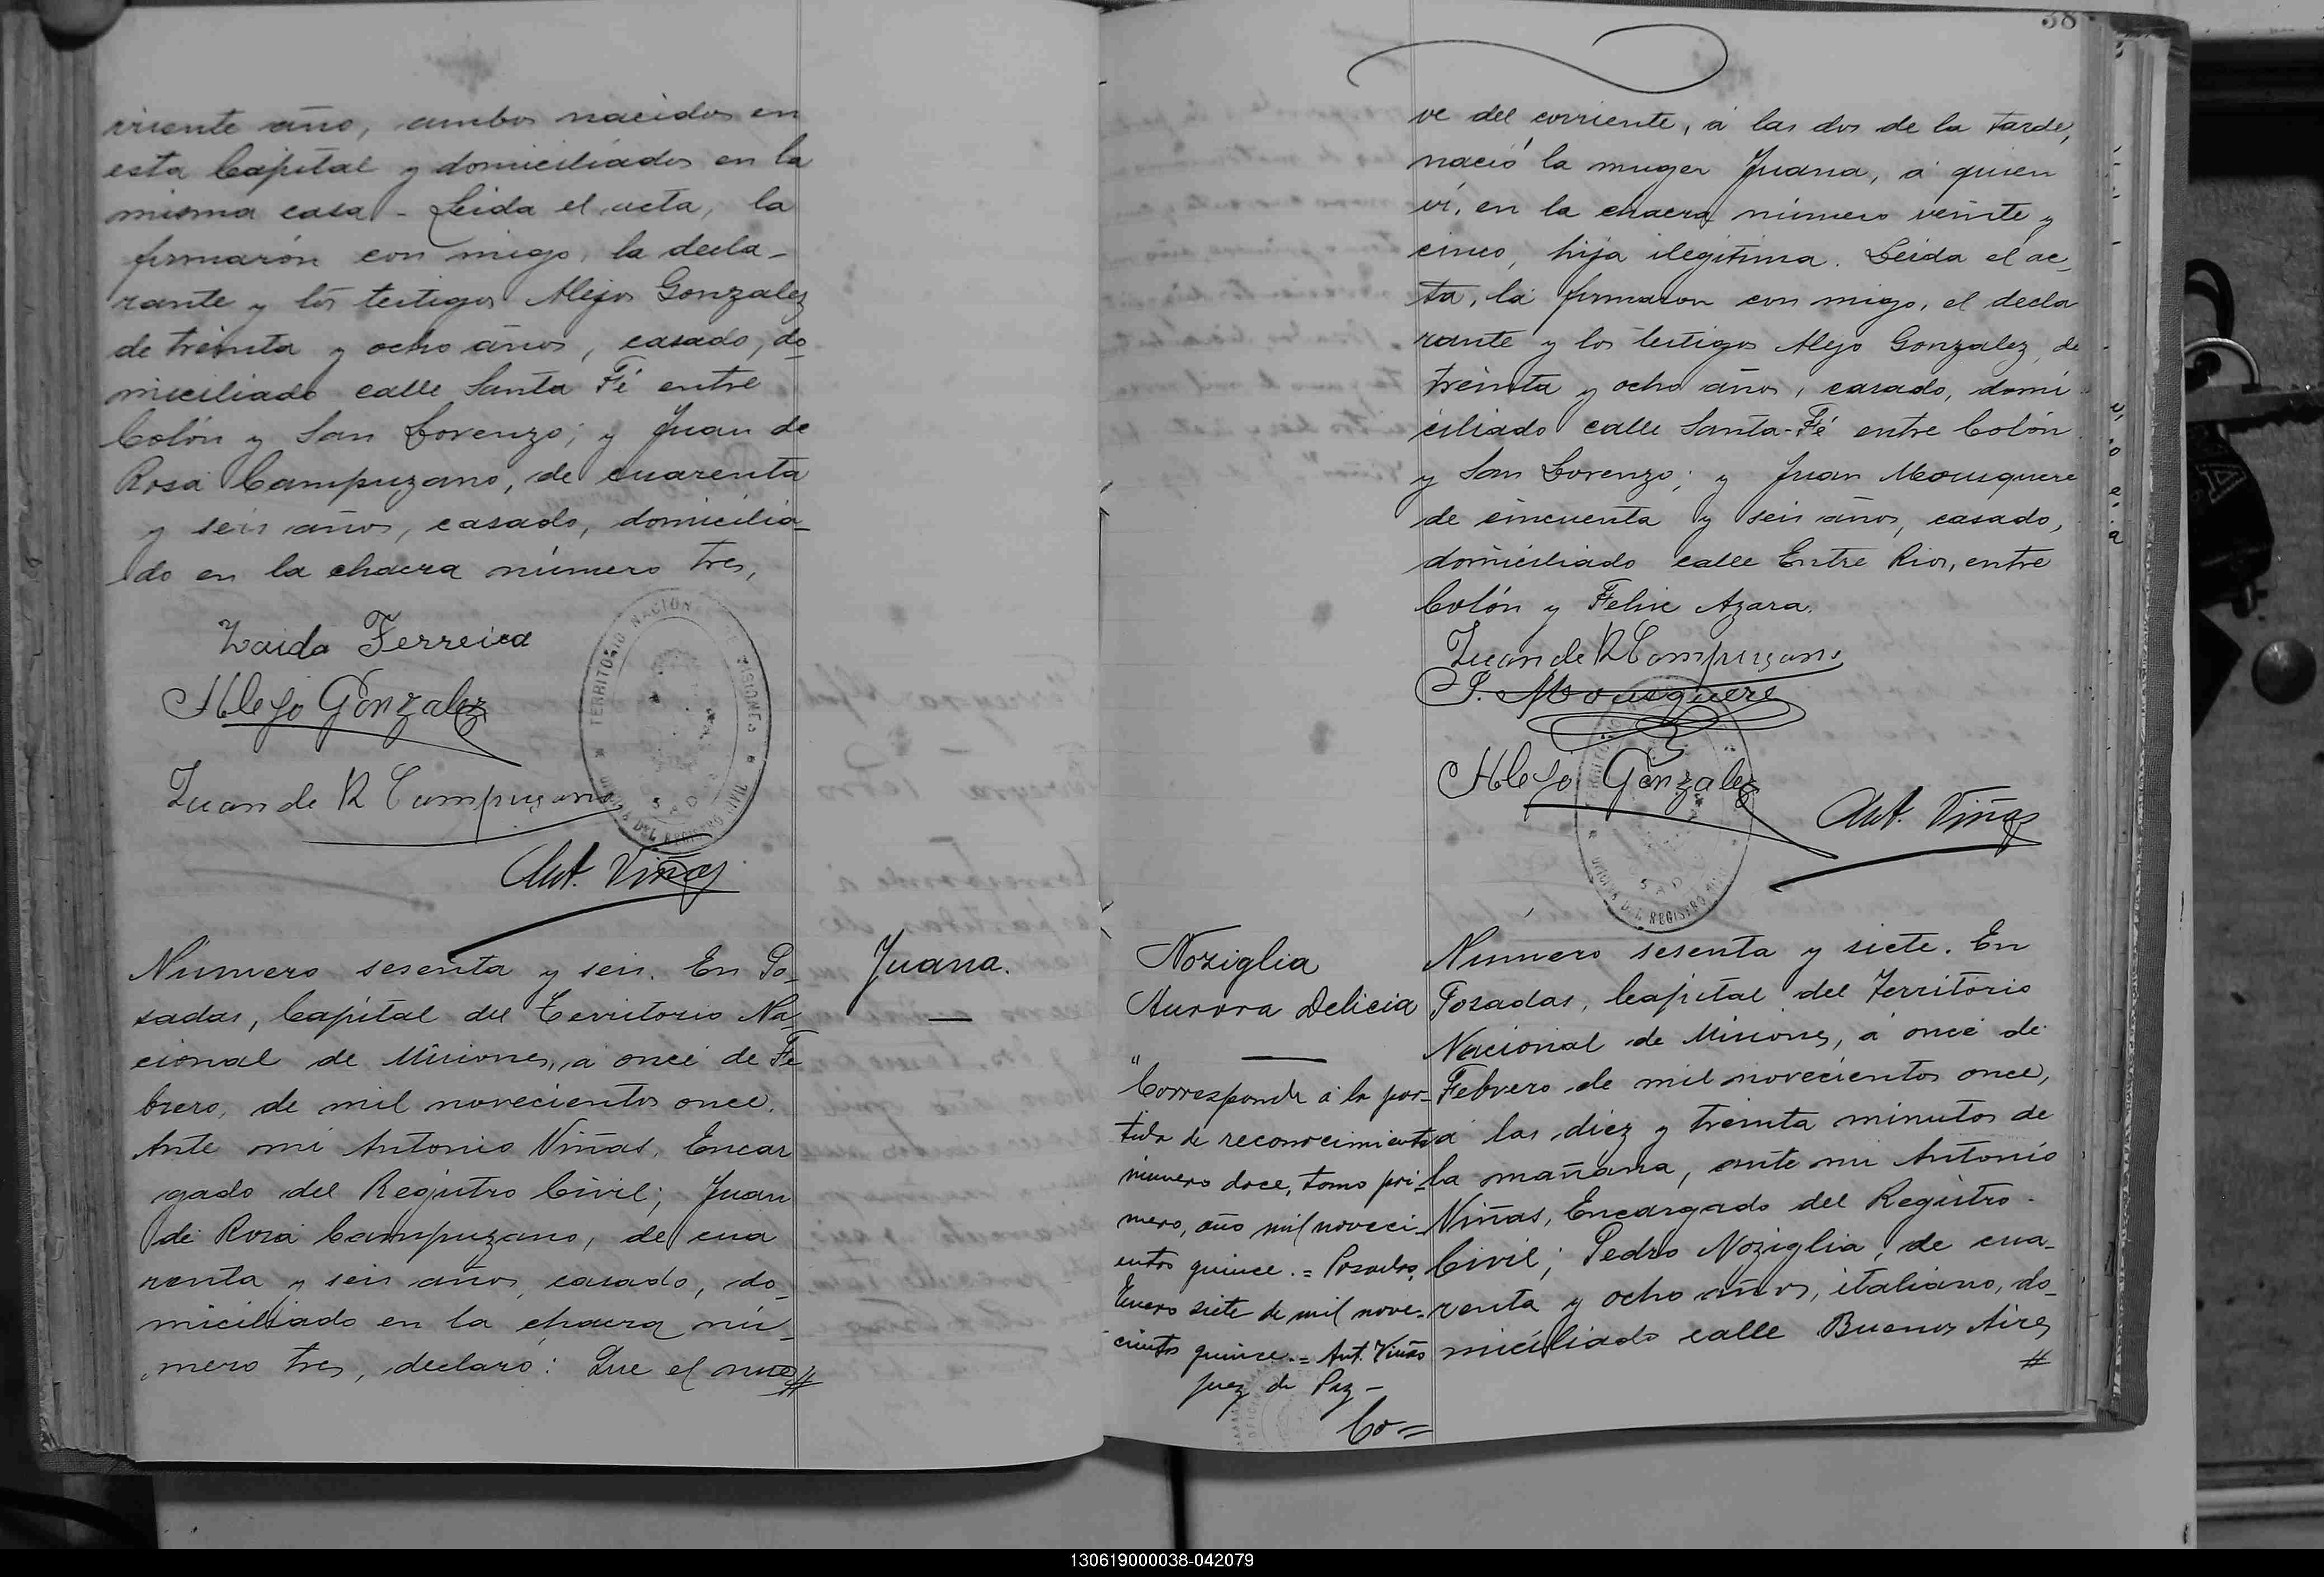 rriente año, ambos nacidos en
esta Capital y domiciliados en la
misma casa - Leida el acta, la
firmarón con migo, la decla-
rante y los testigos Alejo Gonzalez
de treinta y ocho años, casado, do-
miciliado calle Santa Fé entre
Colón y San Lorenzo; y Juan de
Rosa Campuzano, de cuarenta
y seis años, casado, domicilia-
do en la chacra número tres,
Zaida Ferreira
Alejo Gonzalez
Juan de R Campuzano
TERRITORIO NACIONAL DE MISIONES
DEL REGISTRO CIVIL
Ant. Viñas
Número sesenta y seis. En Po-
sadas, Capital del Territorio Na
cional de Misiones, a once de Fe
brero, de mil novecientos once.
Ante mi Antonio Viñas, Encar
gado del Registro Civil; Juan
de Rosa Campuzano, de cua
renta y seis años, casado, do-
miciliado en la chacra nú-
mero tres, declaró: Que el nue #
Juana.
38
ve del corriente, á las dos de la tarde,
nació la muger Juana, á quien
ví, en la chacra número veinte y
cinco, hija ilegitima. Leida el ac-
ta, la firmaron con migo, el decla
rante y los testigos Alejo Gonzalez, de
treinta y ocho años, casado, domi
ciliado calle Santa-Fé entre Colón
y San Lorenzo; y Juan Mousquere
de cincuenta y seis años, casado,
domiciliado calle Entre Rios, entre
Colón y Felix Azara.
Juan de R Campuzano
P. Mousquere
Alejo Gonzalez
Ant. Viñas
DEL REGISTRO
Noziglia
Aurora Delicia
"Corresponde á la par-
tida de reconocimiento
número doce, tomo pri-
mero, año mil noveci-
entos quince. = Posadas,
Enero siete de mil nove-
cientos quince. = Ant. Viñas
Juez de Paz -
Co =
Número sesenta y siete. En
Posadas, Capital del Territorio
Nacional de Misiones, á once de
Febrero de mil novecientos once,
á las diez y treinta minutos de
la mañana, ante mi Antonio
Viñas, Encargado del Registro
Civil; Pedro Noziglia, de cua-
renta y ocho años, italiano, do-
miciliado calle Buenos Aires
#
130619000038-042079